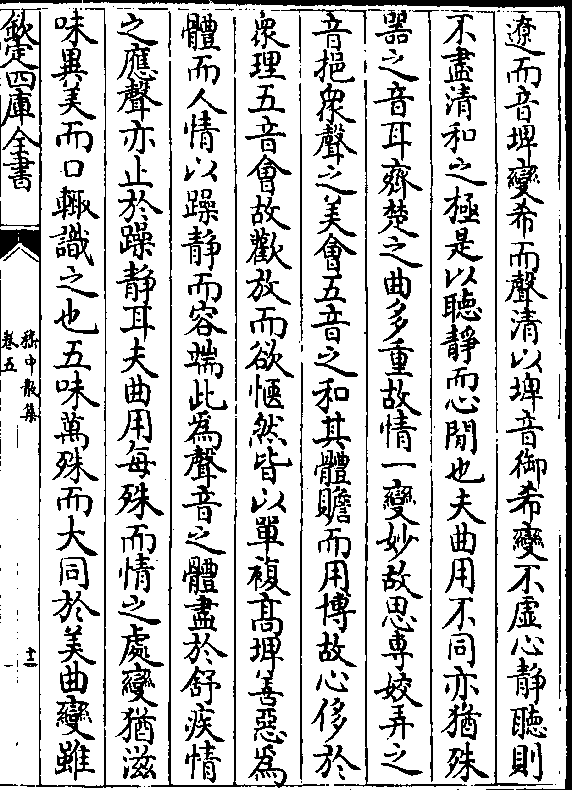 遼而音埤變希而聲清以埤音御希變不虛心靜聽則
不盡清和之極是以聽靜而心閒也夫曲用不同亦猶殊
器之音耳齊楚之曲多重故情一變妙故思專姣弄之
音挹衆聲之美會五音之和其體贍而用博故心侈於
衆理五音會故歡放而欲愜然皆以單複髙埤善惡為
體而人情以躁靜而容端此為聲音之體盡於舒疾情
之應聲亦止於躁靜耳夫曲用每殊而情之處變猶滋
味異美而口輙識之也五味萬殊而大同於美曲變雖
欽定四庫全書
嵇中散集
卷五
十二